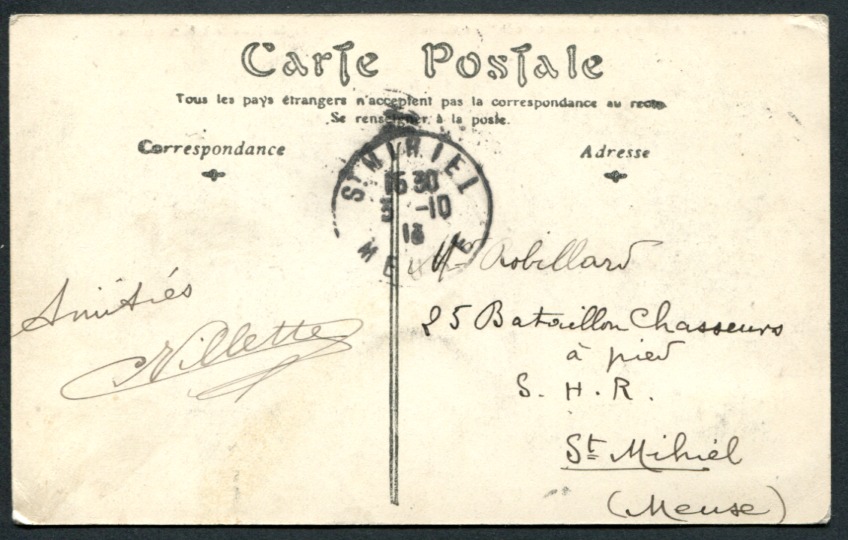 Carte Postale
Tous les pays étrangers n'acceptent pas la correspondance au recto.
Se renseigner à la poste.
Correspondance
Adresse
St MIHIEL
16 30
3 -10
13
MEUSE
Amitiés
Villette
Mr Robillard
25 Bataillon Chasseurs
à pied
S. H. R.
St Mihiel
(Meuse)